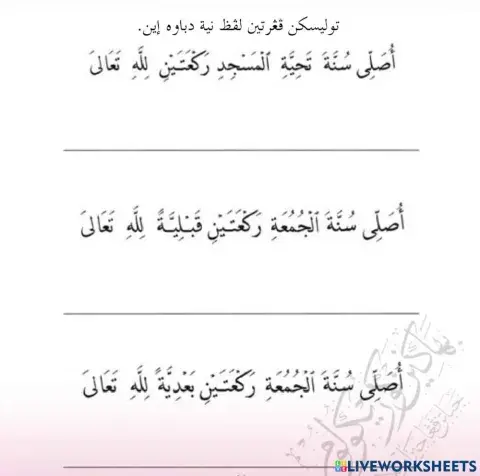 توليسكن ڤڠرتين لفظ نية دباوه إين.
أُصَلِّى سُنَّةَ تَحِيَّةِ ٱلْمَسْجِدِ رَكْعَتَيْنِ لِلَّهِ تَعَالَىٰ
أُصَلِّى سُنَّةَ ٱلْجُمُعَةِ رَكْعَتَيْنِ قَبْلِيَّةً لِلَّهِ تَعَالَىٰ
أُصَلِّى سُنَّةَ ٱلْجُمُعَةِ رَكْعَتَيْنِ بَعْدِيَّةً لِلَّهِ تَعَالَىٰ
LIVEWORKSHEETS